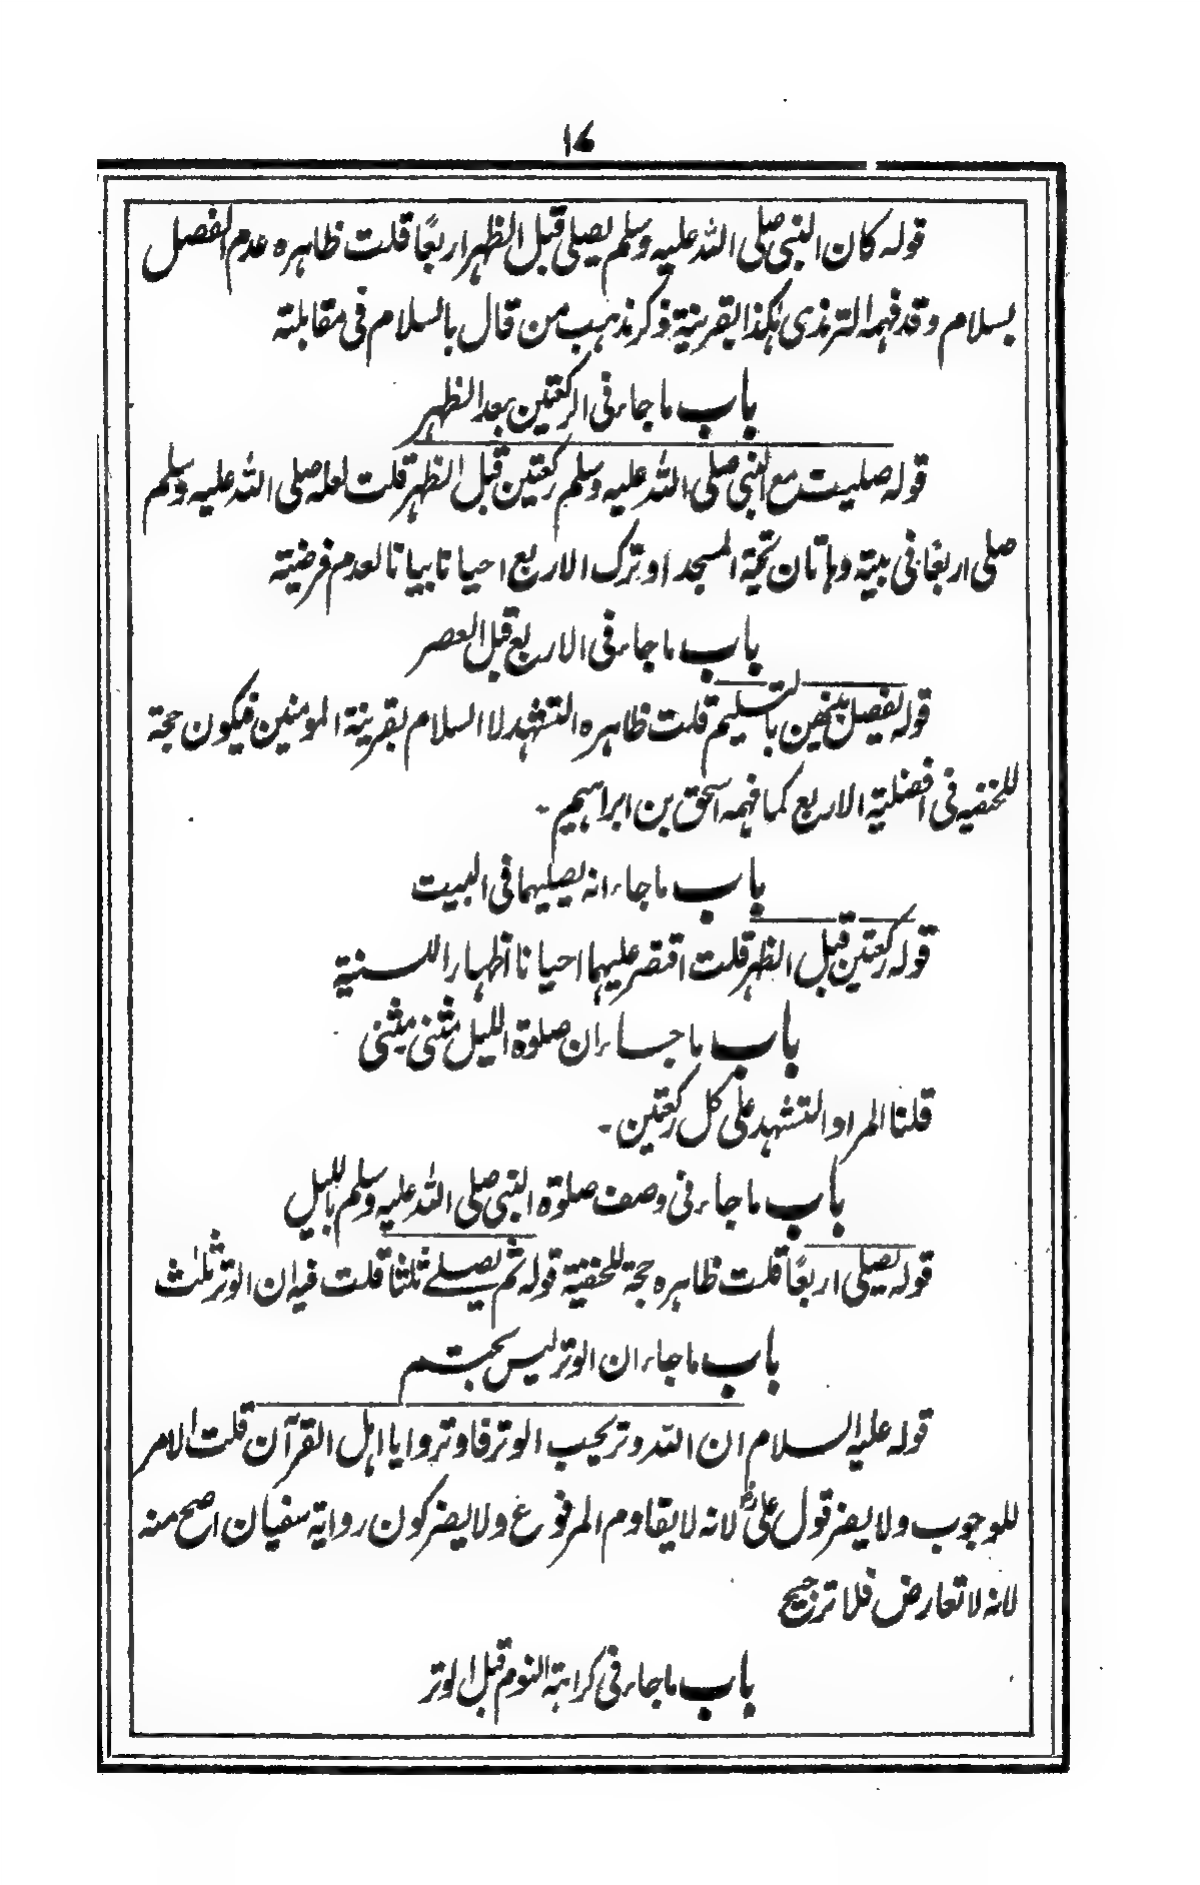 ۱۶
قوله كان النبی صلی الله علیه وسلم یصلی قبل الظهر اربعًا قلت ظاهره عدم الفصل
بسلام وقد فهمه الترمذی هکذا بقرینة ذکر مذهب من قال بالسلام فی مقابلته
باب ما جاء فی الرکعتین بعد الظهر
قوله صلیت مع النبی صلی الله علیه وسلم رکعتین قبل الظهر قلت لعله صلی الله علیه وسلم
صلی اربعًا فی بیته وهاتان تحیة المسجد او ترک الاربع احیانا بیانا لعدم فرضیته
باب ما جاء فی الاربع قبل العصر
قوله یفصل بینهن بالتسلیم قلت ظاهره التشهد لا السلام بقرینة المومنین فیکون حجة
للحنفیه فی افضلیة الاربع کما فهمه اسحق بن ابراهیم۔
باب ما جاء انه یصلیهما فی البیت
قوله رکعتین قبل الظهر قلت اقتصر علیهما احیانا اظهارا للسنیة
باب ما جاء ان صلوة اللیل مثنی مثنی
قلنا المراد التشهد علی کل رکعتین۔
باب ما جاء فی وصف صلوة النبی صلی الله علیه وسلم باللیل
قوله یصلی اربعًا قلت ظاهره حجة للحنفیة قوله ثم یصلے ثلثا قلت فیه ان الوتر ثلث
باب ما جاء ان الوتر لیس بحتم
قوله علیه السلام ان الله وتر یحب الوتر فاوتروا یا اهل القرآن قلت الامر
للوجوب ولا یضر قول علیؓ لانه لا یقاوم المرفوع ولا یضر کون روایة سفیان اصح منه
لانه لا تعارض فلا ترجیح
باب ما جاء فی کراهة النوم قبل الوتر